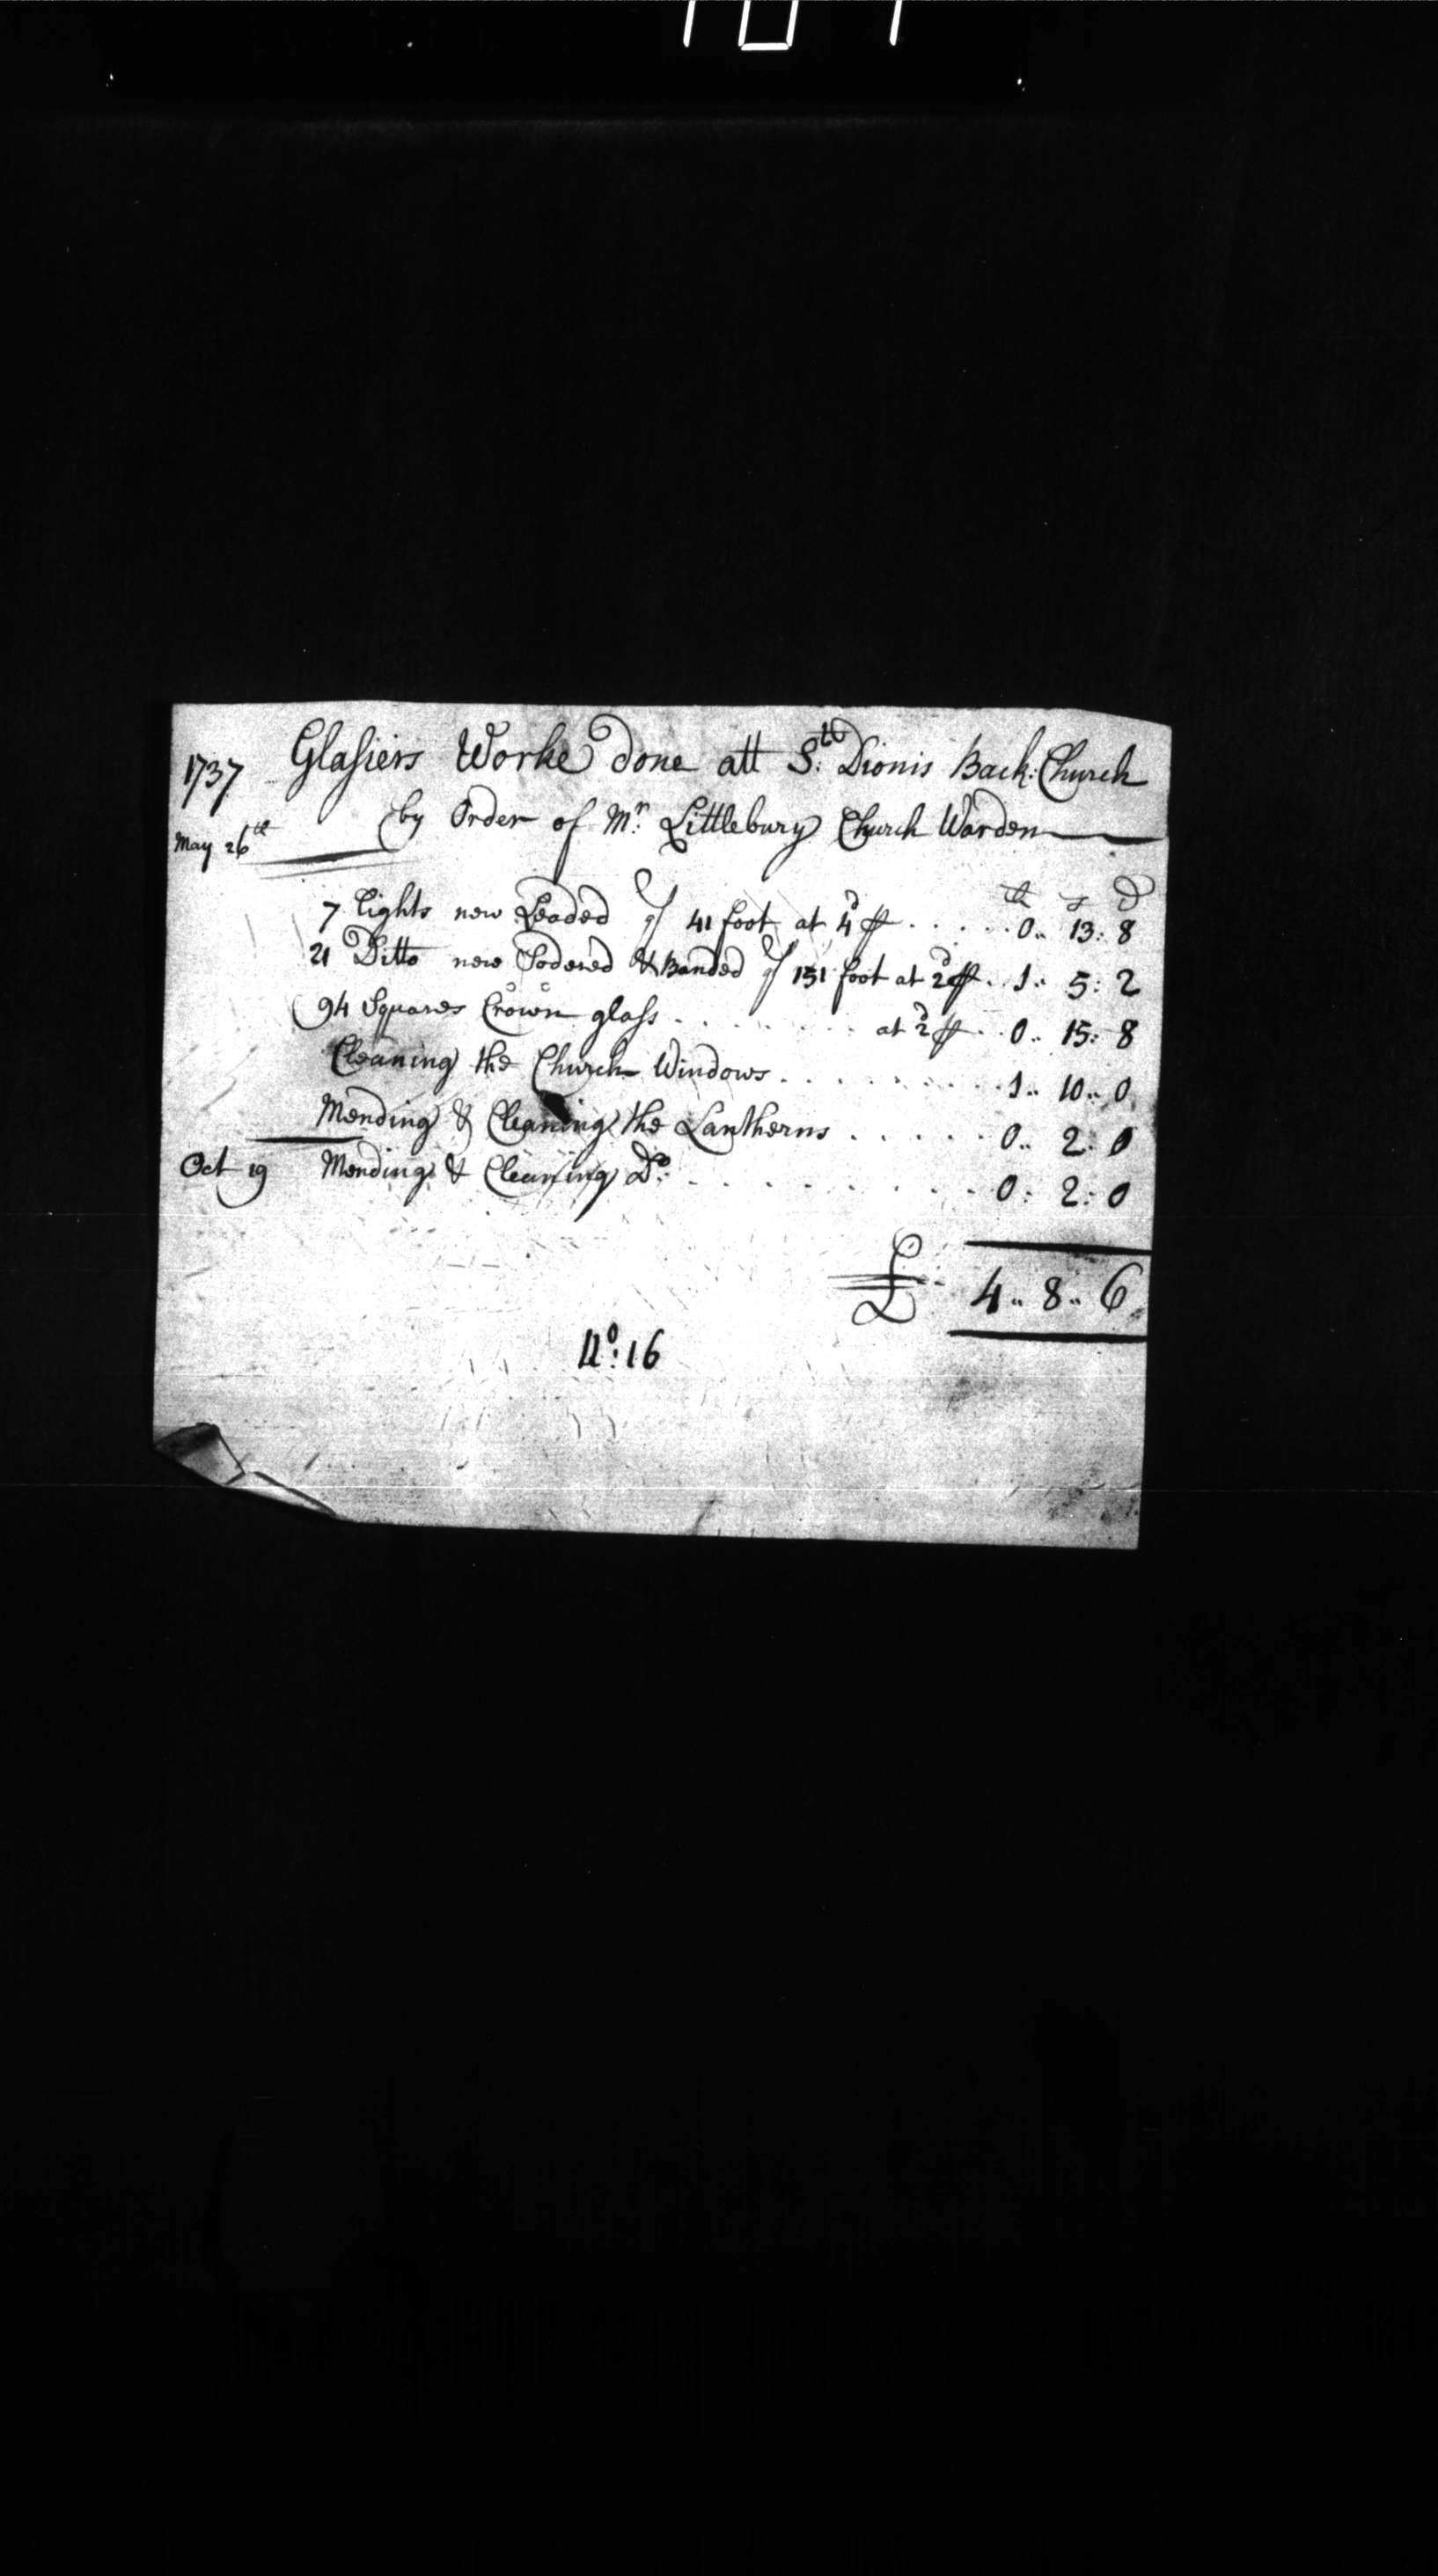 1737 Glasiers Worke done att St: Dionis Back: Church
May 26th by Order of Mr: Littlebury Church Warden
lb s D
7 Lights new Leaded qt 41 foot at 4d pr ..... 0.. 13: 8
21 Ditto new Sodered & Banded qt 151 foot at 2d pr .. 1.. 5: 2
94 Squares Crown glass ........ at 2d pr .. 0.. 15: 8
Cleaning the Church Windows .......... 1.. 10.. 0
Mending & Cleaning the Lantherns ...... 0.. 2: 0
Oct 19 Mending & Cleaning Do: .......... 0: 2: 0
£ 4.. 8.. 6
No: 16